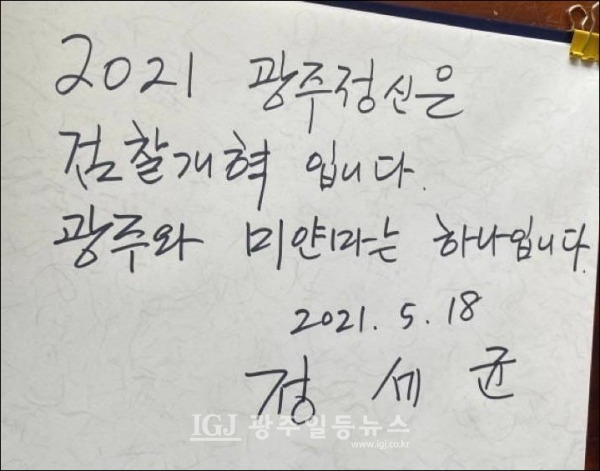 2021 광주정신은
검찰개혁 입니다.
광주와 미얀마는 하나입니다.
2021. 5. 18
정 세 균
IGJ 광주일등뉴스
www.igj.co.kr